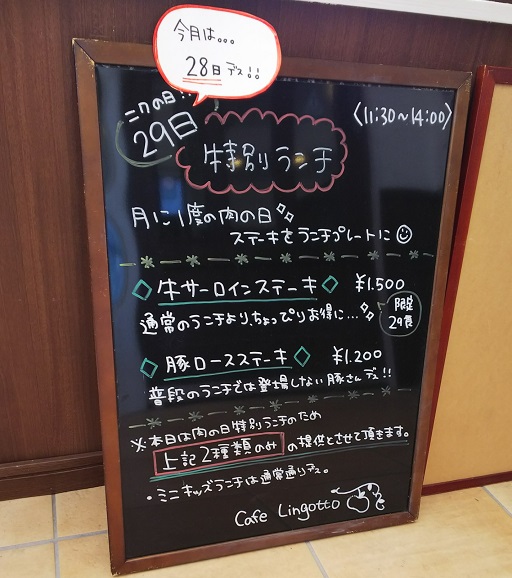 今月は。。。
28日デス!!
ニクの日!!
29日
〈11:30~14:00〉
特別ランチ
月に1度の肉の日
ステーキをランチプレートに
牛サーロインステーキ ¥1.500
通常のランチより、ちょっぴりお得に…
限定
29食
豚ロースステーキ ¥1.200
普段のランチでは登場しない豚さんデス!!
※本日は肉の日特別ランチのため
上記2種類のみの提供とさせて頂きます。
・ミニキッズランチは通常通りデス。
Cafe Lingotto